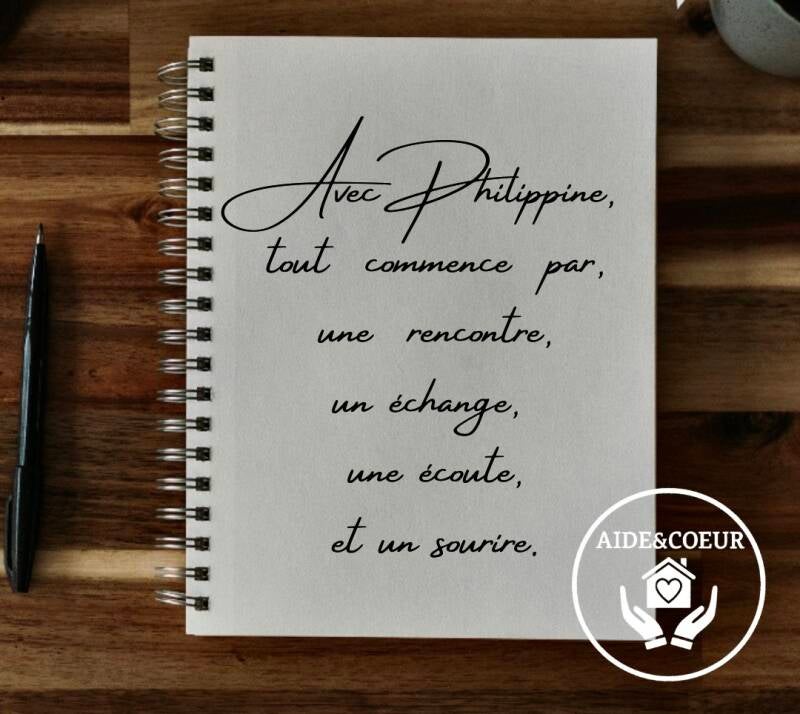 Avec Philippine,
tout commence par,
une rencontre,
un échange,
une écoute,
et un sourire.
AIDE&COEUR